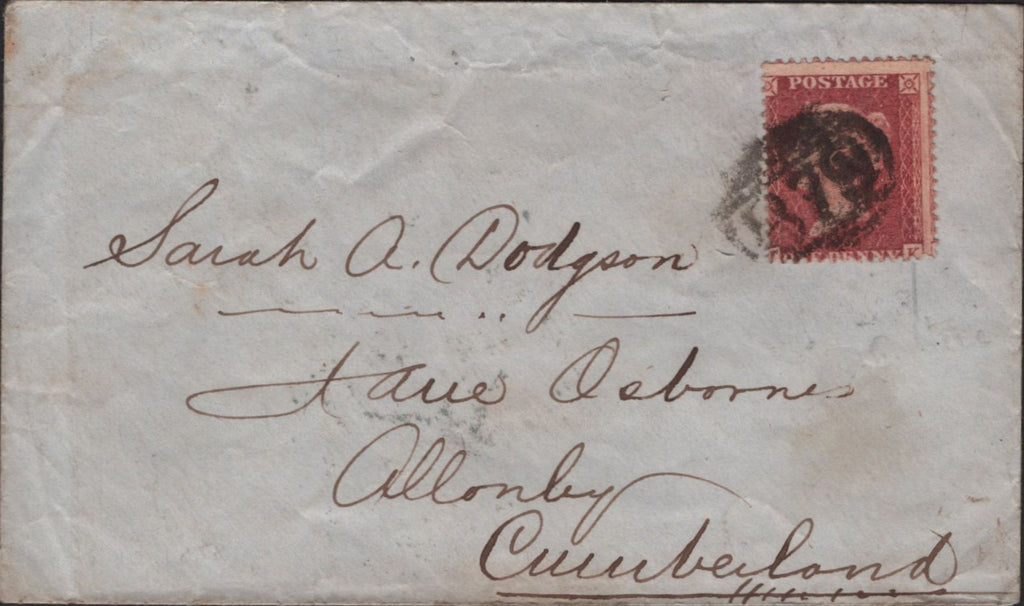 POSTAGE
Sarah A. Dodgson
Jane Osbornes
Allonby
Cumberland